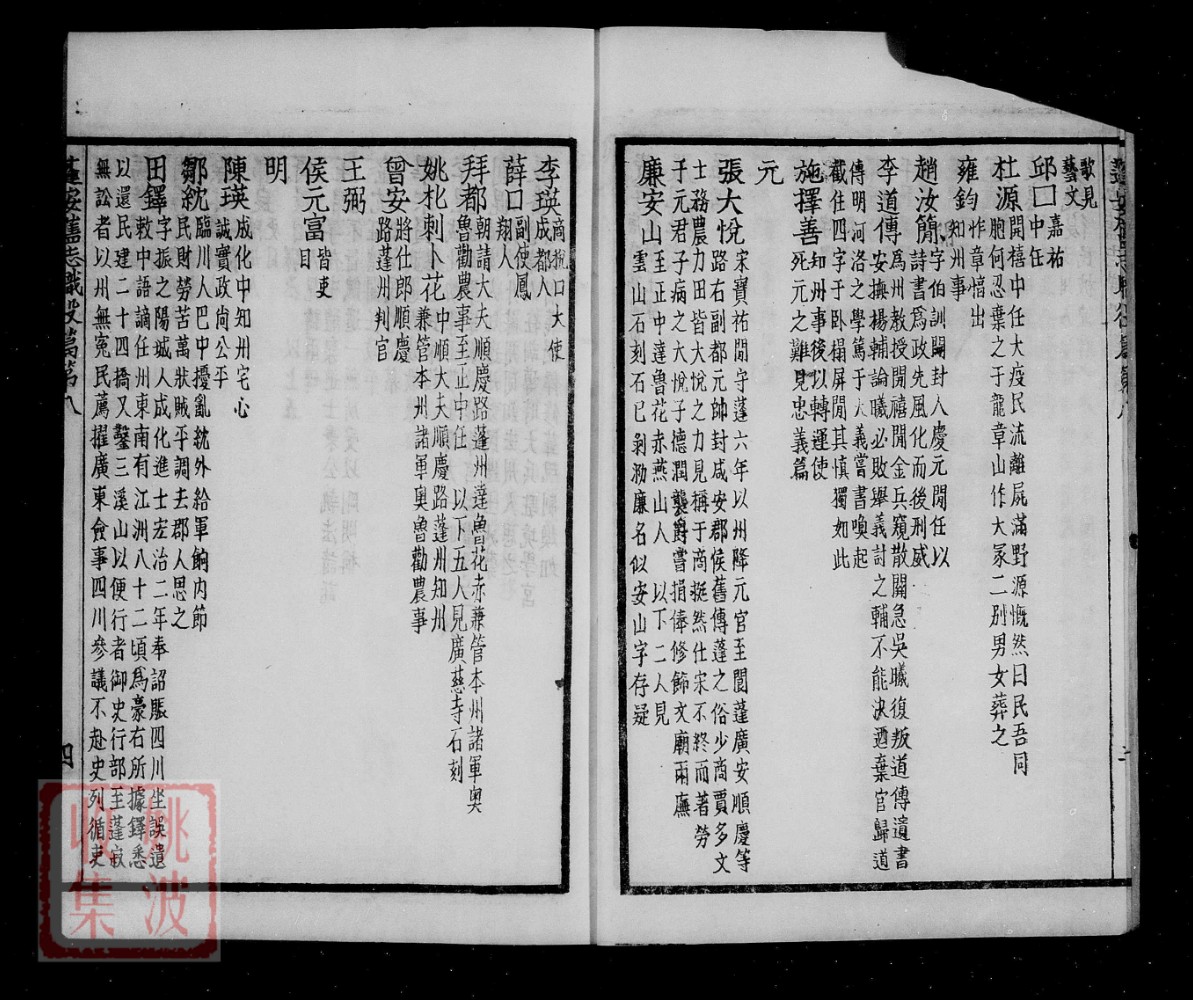 歌見
藝文
邱口嘉祐
中任
杜源開禧中任大疫民流離屍滿野源慨然曰民吾同
胞何忍葉之于龍章山作大冢二別男女葬之
雍鈞祚章惜出
知州事
趙汝簡字伯訓開封人慶元閒任以
詩書爲政先風化而後刑威
李道傳爲州教授開禧閒金兵窺散關急吳曦復叛道傳遺書
安撫楊輔論曦必敗舉義討之輔不能決迺棄官歸道
傳明河洛之學篤于大義嘗書喚起
截住四字于卧榻屏閒其慎獨如此
施擇善知州事後以轉運使
死元之難見忠義篇
元
張大悅宋寶祐閒守蓬六年以州降元官至閬蓬廣安順慶等
路右副都元帥封咸安郡侯舊傳蓬之俗少商賈多文
士務農力田皆大悅之力見稱于商挺然仕宋不終而著勞
于元君子病之大悅子德潤襲爵嘗捐俸修飾文廟兩廡
廉安山至正中達魯花赤燕山人 以下二人見
雲山石刻石已剝泐廉名似安山字存疑
李瑛商梲口大使
成都人
薛口副使鳳
翔人
拜都朝請大夫順慶路蓬州達魯花赤兼管本州諸軍奧
魯勸農事至正中任 以下五人見廣慈寺石刻
姚朼刺卜花中順大夫順慶路蓬州知州
兼管本州諸軍奧魯勸農事
曾安將仕郎順慶
路蓬州判官
王弼
侯元富皆吏
目
明
陳瑛成化中知州宅心
誠實政尚公平
鄒紞臨川人巴中擾亂紞外給軍餉内節
民財勞苦萬狀賊平調去郡人思之
田鐸字振之陽城人成化進士宏治二年奉詔賑四川坐誤遺
敕中語謫任州東南有江洲八十二頃爲豪右所據鐸悉
以還民建二十四橋又鑿三溪山以便行者御史行部至蓬寂
無訟者以州無冤民薦擢廣東僉事四川參議不赴史列循吏
蓬安舊志職役篇第八
四
姚波
收集